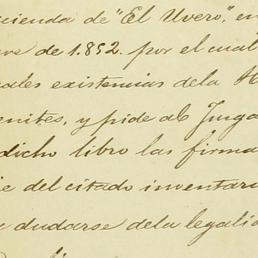 cienda de "El Uvero", en
de 1.852. por el cual
ales existencias dela
enites, y pide al Juzga
dicho libro las firma
del citado inventari
dudarse dela legali